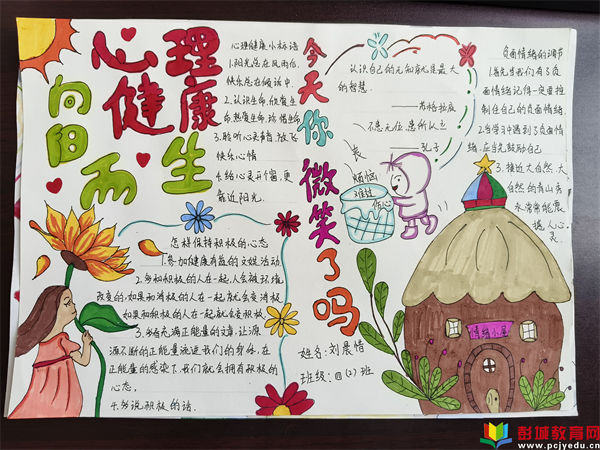 心理健康
向阳而生
心理健康小标语
1.阳光总在风雨后,
快乐总在倾诉中.
2.认识生命,欣赏生
命,热爱生命,珍惜生命
3.聆听心灵声音,放飞
快乐心情
4.给心灵开个窗,更
靠近阳光.
今天你微笑了吗
认识自己的无知就是最大
的智慧.
——苏格拉底
不患无位,患所以立
——孔子
丧
烦恼
难过
伤心
负面情绪的调节
1.首先当我们有了负
面情绪记得一定要控
制住自己的负面情绪.
2.当学习中遇到了负面情
绪,应当先鼓励自己
3.接近大自然,大
自然的青山秀
水常常能震
撼人心
灵.
怎样保持积极的心态
1.参加健康有益的文娱活动
2.多和积极的人在一起,人会被环境
改变的,如果和消极的人在一起就会变消极,
如果和积极的人在一起就会变积极.
3.多看充满正能量的文章,让源
源不断的正能量流进我们的身体,在
正能量的感染下,我们就会拥有积极的
心态.
4.多说积极的话.
姓名:刘晨情
班级:四(2)班
情绪小屋
彭城教育网
www.pcjyedu.cn